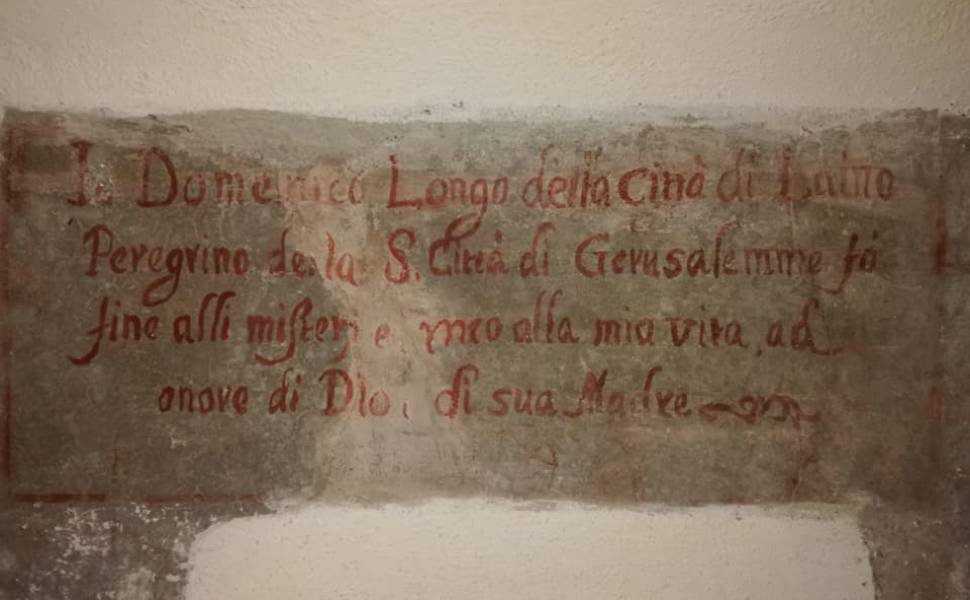 Io Domenico Longo della Città di
Peregrino della S. Città di Gerusalemme fò
fine alli misterj e alla mia vita, ad
onore di Dio, di sua Madre